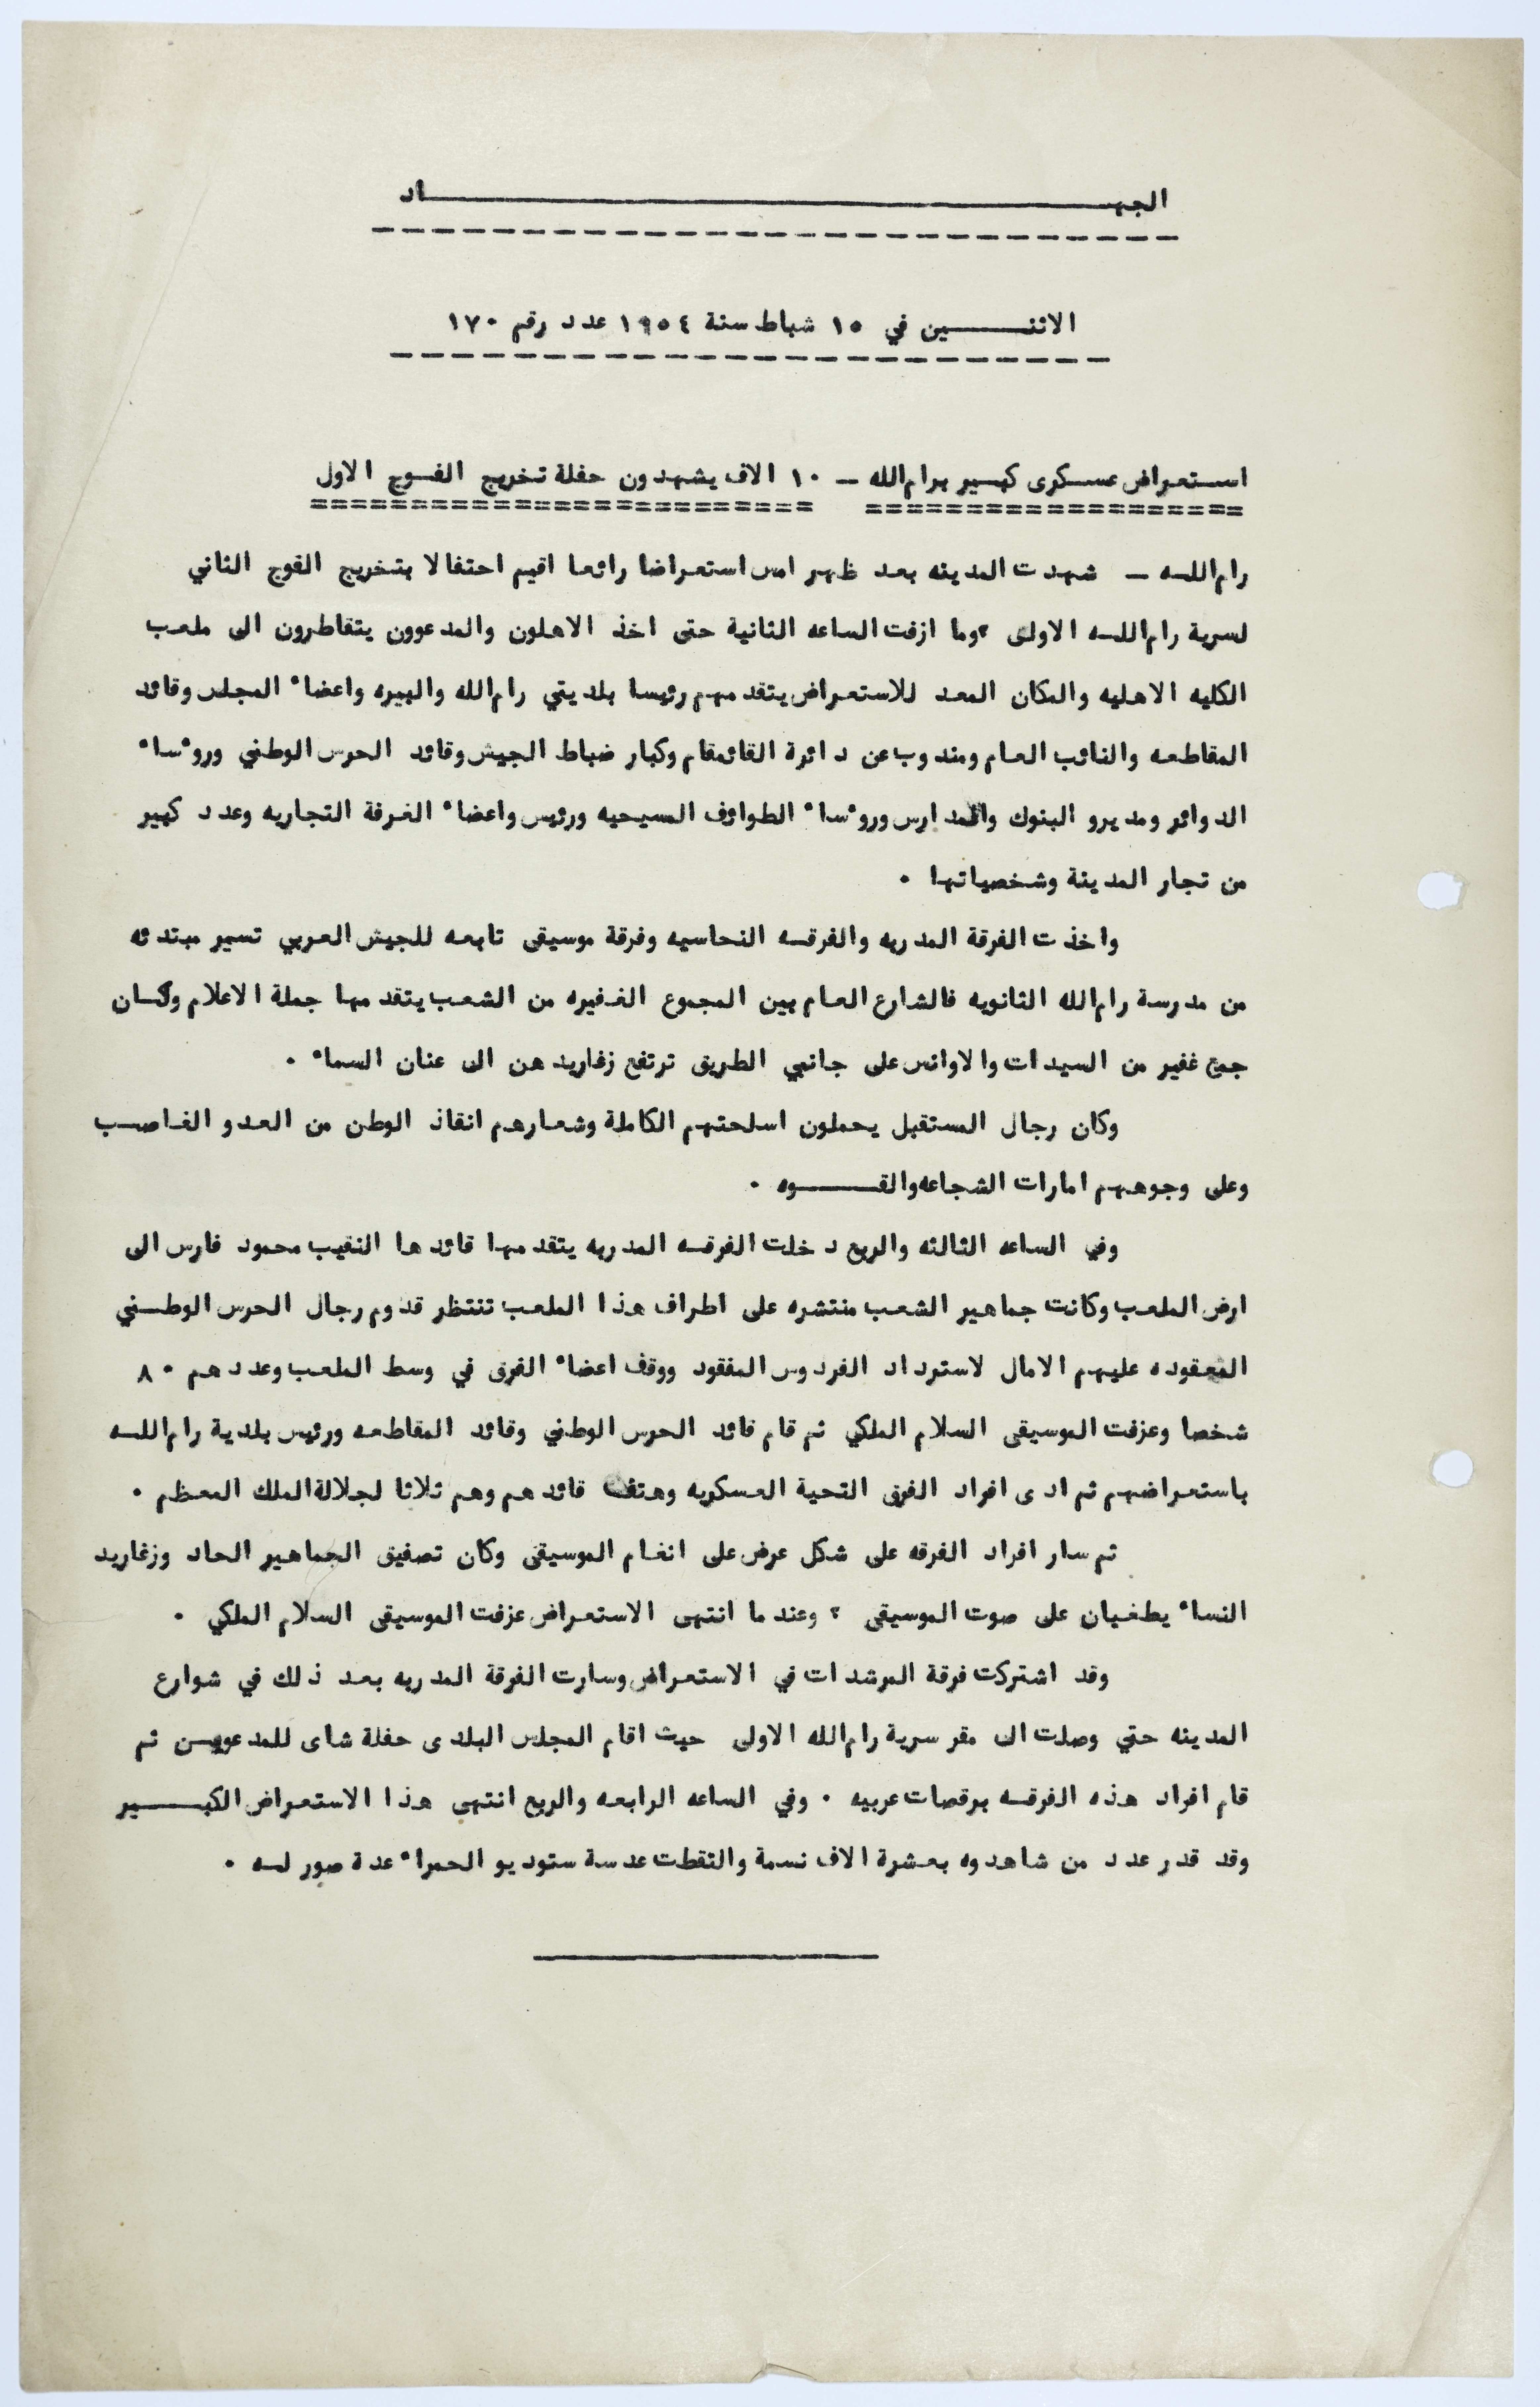 الجهـــــــــــــــــــــــــــــــاد
الاثنـــــــين في ١٥ شباط سنة ١٩٥٤ عدد رقم ١٧٠
استعراض عسكرى كبير برام الله — ١٠ الاف يشهدون حفلة تخريج الفوج الاول
رام اللـه — شهدت المدينه بعد ظهر امس استعراضا رائعا اقيم احتفالا بتخريج الفوج الثاني
لسرية رام اللـه الاولى ، وما ازفت الساعه الثانية حتى اخذ الاهلون والمدعوون يتقاطرون الى ملعب
الكليه الاهليه والمكان المعد للاستعراض يتقدمهم رئيسا بلديتي رام الله والبيره واعضاء المجلس وقائد
المقاطعه والنائب العام ومندوب عن دائرة القائمقام وكبار ضباط الجيش وقائد الحرس الوطني وروءساء
الدوائر ومديرو البنوك والمدارس وروءساء الطوائف المسيحيه ورئيس واعضاء الغرفة التجاريه وعدد كبير
من تجار المدينة وشخصياتها ٠
واخذت الفرقة المدربه والفرقـه النحاسيه وفرقة موسيقى تابعه للجيش العربي تسير مبتدئه
من مدرسة رام الله الثانويه فالشارع العام بين المجموع الغفيره من الشعب يتقدمها حملة الاعلام وكـان
جمع غفير من السيدات والاوانس على جانبي الطريق ترتفع زغاريدهن الى عنان السماء ٠
وكان رجال المستقبل يحملون اسلحتهم الكاملة وشعارهم انقاذ الوطن من العدو الغاصـب
وعلى وجوههم امارات الشجاعه والقـــــوه ٠
وفي الساعه الثالثه والربع دخلت الفرقـه المدربه يتقدمها قائدها النقيب محمود فارس الى
ارض الملعب وكانت جماهير الشعب منتشره على اطراف هذا الملعب تنتظر قدوم رجال الحرس الوطـني
المعقوده عليهم الامال لاسترداد الفردوس المفقود ووقف اعضاء الفرق في وسط الملعب وعددهم ٨٠
شخصا وعزفت الموسيقى السلام الملكي ثم قام قائد الحرس الوطني وقائد المقاطعه ورئيس بلدية رام اللـه
باستعراضهم ثم ادى افراد الفرق التحية العسكريه وهتف قائدهم وهم ثلاثا لجلالة الملك المعظم ٠
ثم سار افراد الفرقه على شكل عرض على انغام الموسيقى وكان تصفيق الجماهير الحاد وزغاريد
النساء يطغيان على صوت الموسيقى ، وعندما انتهى الاستعراض عزفت الموسيقى السلام الملكي ٠
وقد اشتركت فرقة المرشدات في الاستعراض وسارت الفرقة المدربه بعد ذلك في شوارع
المدينه حتي وصلت الى مقر سرية رام الله الاولى حيث اقام المجلس البلدى حفلة شاى للمدعويـن ثم
قام افراد هذه الفرقـه برقصات عربيه ٠ وفي الساعه الرابعه والربع انتهى هذا الاستعراض الكبــــير
وقد قدر عدد من شاهدوه بعشرة الاف نسمة والتقطت عدسة ستوديو الحمراء عدة صور لـه ٠